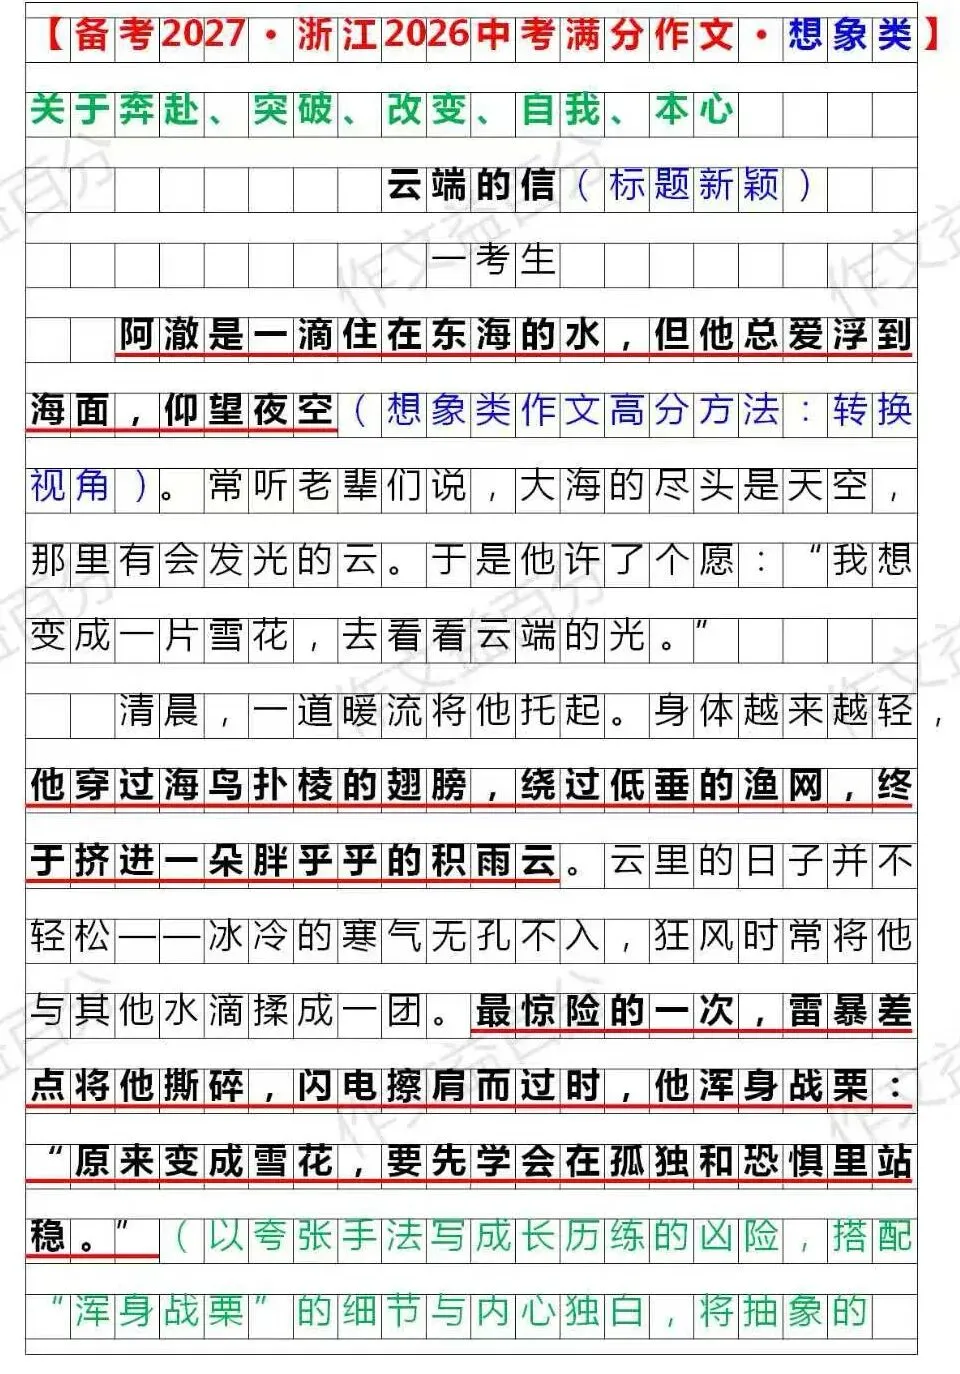 【备考2027·浙江2026中考满分作文·想象类】
关于奔赴、突破、改变、自我、本心
云端的信（标题新颖）
一考生
阿澈是一滴住在东海的水，但他总爱浮到
海面，仰望夜空（想象类作文高分方法：转换
视角）。常听老辈们说，大海的尽头是天空，
那里有会发光的云。于是他许了个愿：“我想
变成一片雪花，去看看云端的光。”
清晨，一道暖流将他托起。身体越来越轻，
他穿过海鸟扑棱的翅膀，绕过低垂的渔网，终
于挤进一朵胖乎乎的积雨云。云里的日子并不
轻松——冰冷的寒气无孔不入，狂风时常将他
与其他水滴揉成一团。最惊险的一次，雷暴差
点将他撕碎，闪电擦肩而过时，他浑身战栗：
“原来变成雪花，要先学会在孤独和恐惧里站
稳。”（以夸张手法写成长历练的凶险，搭配
“浑身战栗”的细节与内心独白，将抽象的
作文益百分
作文益百分
作文益百分